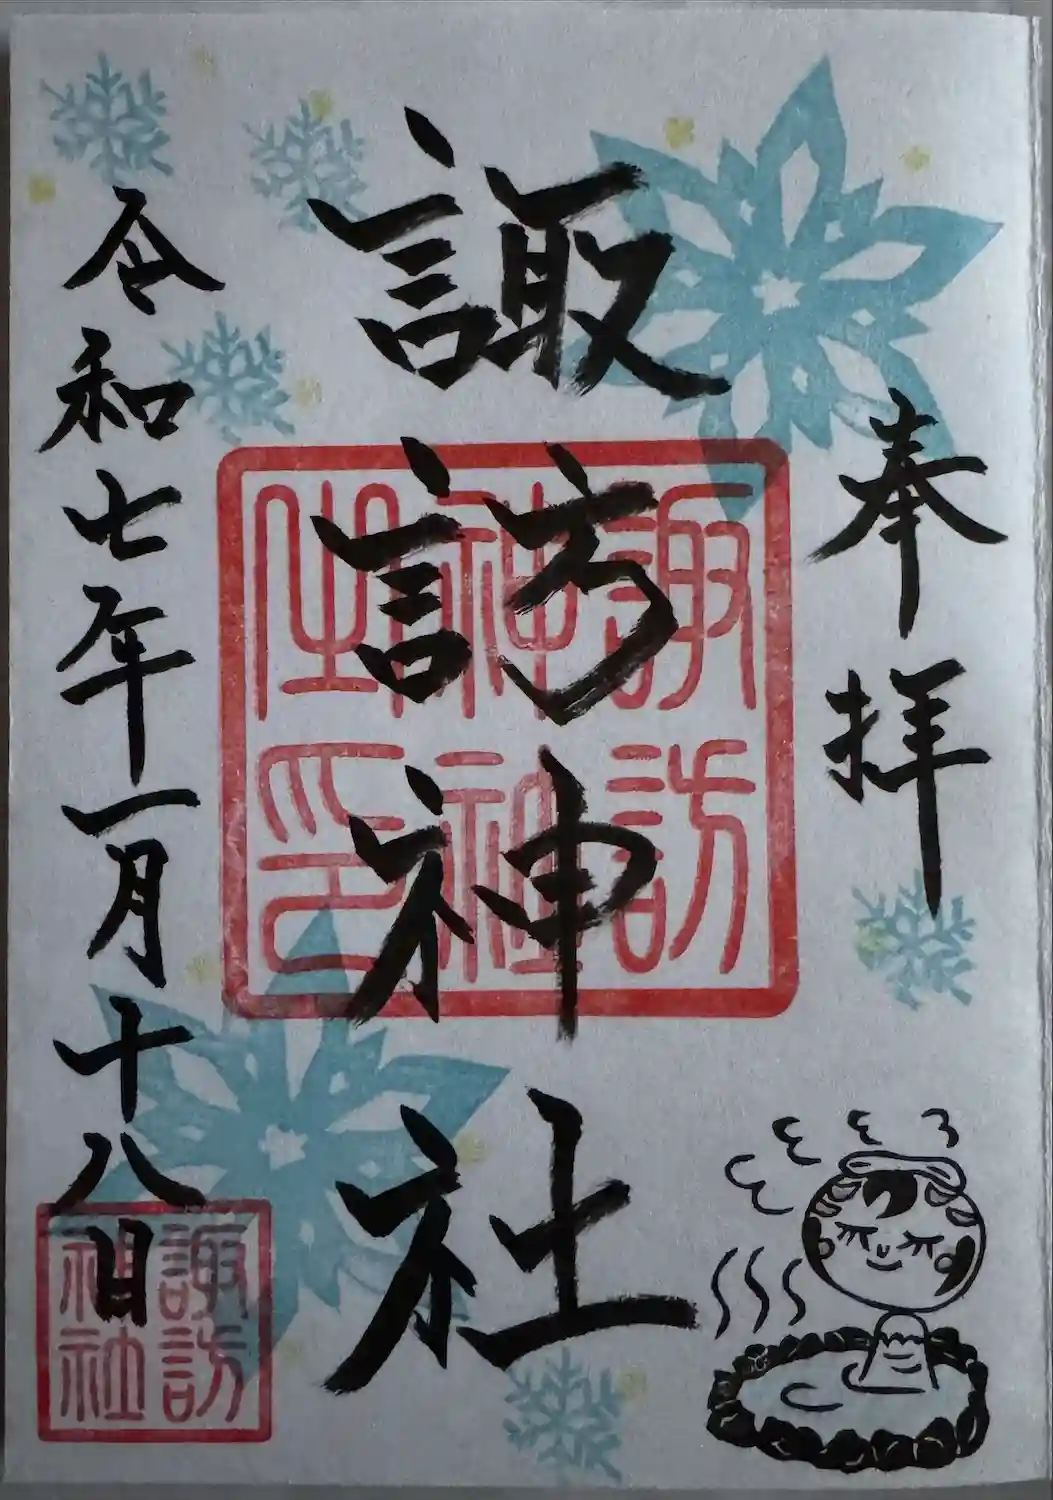 奉拝
諏訪神社
諏訪
神社
之印
令和七年一月十八日
諏訪
神社